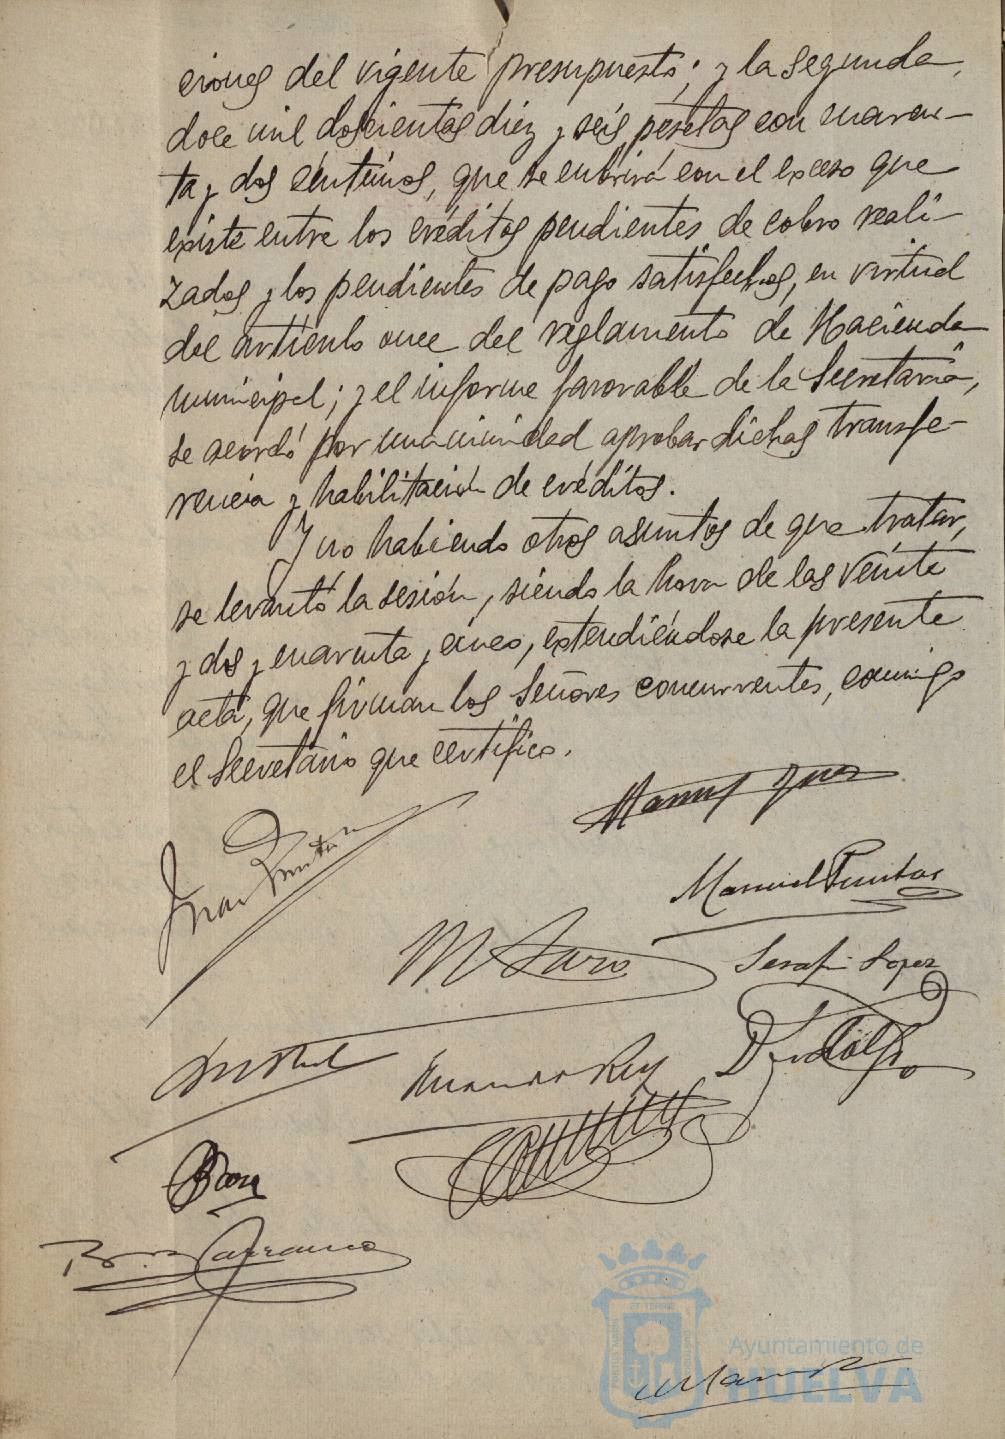 ciones del vigente presupuesto; y la segunda,
doce mil doscientas diez y seis pesetas con cuaren-
ta y dos céntimos, que se cubrirá con el exceso que
existe entre los créditos pendientes de cobro reali-
zados y los pendientes de pago satisfechos, en virtud
del artículo once del reglamento de Hacienda
municipal; y el informe favorable de la Secretaría,
se acordó por unanimidad aprobar dichas transfe-
rencia y habilitación de créditos.
Y no habiendo otros asuntos de que tratar,
se levantó la sesión, siendo la hora de las veinte
y dos y cuarenta y cinco, extendiéndose la presente
acta, que firman los Señores concurrentes, conmigo
el Secretario que certifico.
Manuel
Juan
Manuel
M
Serafin Lopez
Rey
Carranco
Ayuntamiento de
HUELVA